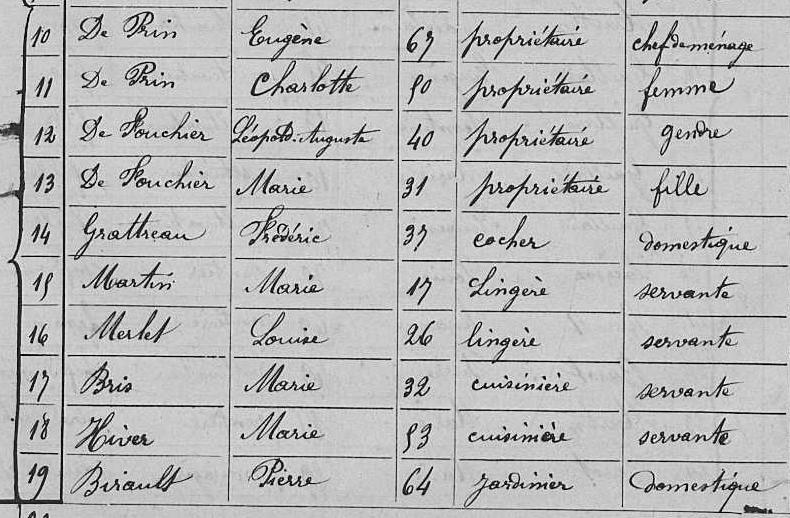 10 De Prin Eugène 67 propriétaire chef de ménage
11 De Prin Charlotte 50 propriétaire femme
12 De Fouchier Léopold-Auguste 40 propriétaire gendre
13 De Fouchier Marie 31 propriétaire fille
14 Grattreau Frédéric 37 cocher domestique
15 Martin Marie 17 Lingère servante
16 Merlet Louise 26 lingère servante
17 Bris Marie 32 cuisinière servante
18 Hiver Marie 53 cuisinière servante
19 Birault Pierre 64 Jardinier domestique